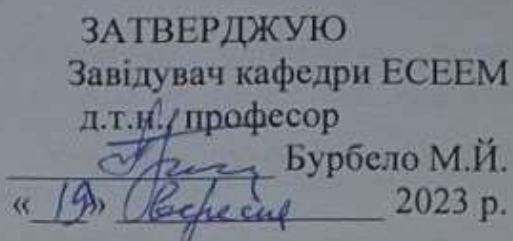 ЗАТВЕРДЖУЮ
Завідувач кафедри ЕСЕЕМ
д.т.н., професор
Бурбело М.Й.
«19» вересня 2023 р.